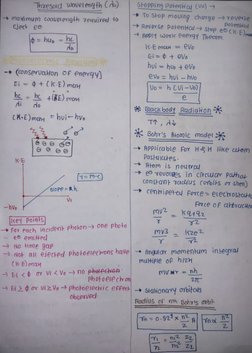 Threshold wavelength (λ₀)
→ maximum wavelength required to
Eject e⊖
ϕ = hν₀ = hc/λ₀
→ (conservation of energy)
Ei = ϕ + (K·E) max
hc/λi = hc/λ₀ + (KE) max
(K·E) max = hνi - hν₀
K·E
Slope = h
-hν₀
Vi
Key Points
→ for each incident photon → one photo
- e⊖ emitted
→ no time gap
→ not all ejected photoelectrons have
(K·E) max
→ Ei < ϕ or νi < ν₀ → no
photoelectron
→ Ei ≥ ϕ or νi ≥ ν₀ → photoelectric effect
observed
Stopping Potential (V₀) →
→ To stop moving charge → reverse
potential
→ Reverse Potential → stop e⊖ (K·E) max
→ Apply work energy theorem
K·E max = eV₀
Ei = ϕ + eV₀
hνi = hν₀ + eV₀
eV₀ = hνi - hν₀
V₀ = h(νi - ν₀)/e
* Blackbody Radiation *
T↑, λ↓
* Bohr's Atomic model *
→ Applicable for H & H like
Postulates.
→ Atom is neutral
→ e⊖ revolves in circular path of
constant radius (orbits or shell)
→ centripetal force = Electrostatic
force of attraction
mv²/r = kq₁q₂/r²
mv²/r = kze²/r²
→ Angular momentum integral
multiple of h/2π
mvr = nh/2π
→ Stationary orbits
Radius of nth Bohr's orbit
rn = 0.529 × n²/z Å
rn ∝ n²/z
r₁/r₂ = n₁²/n₂² z₂/z₁